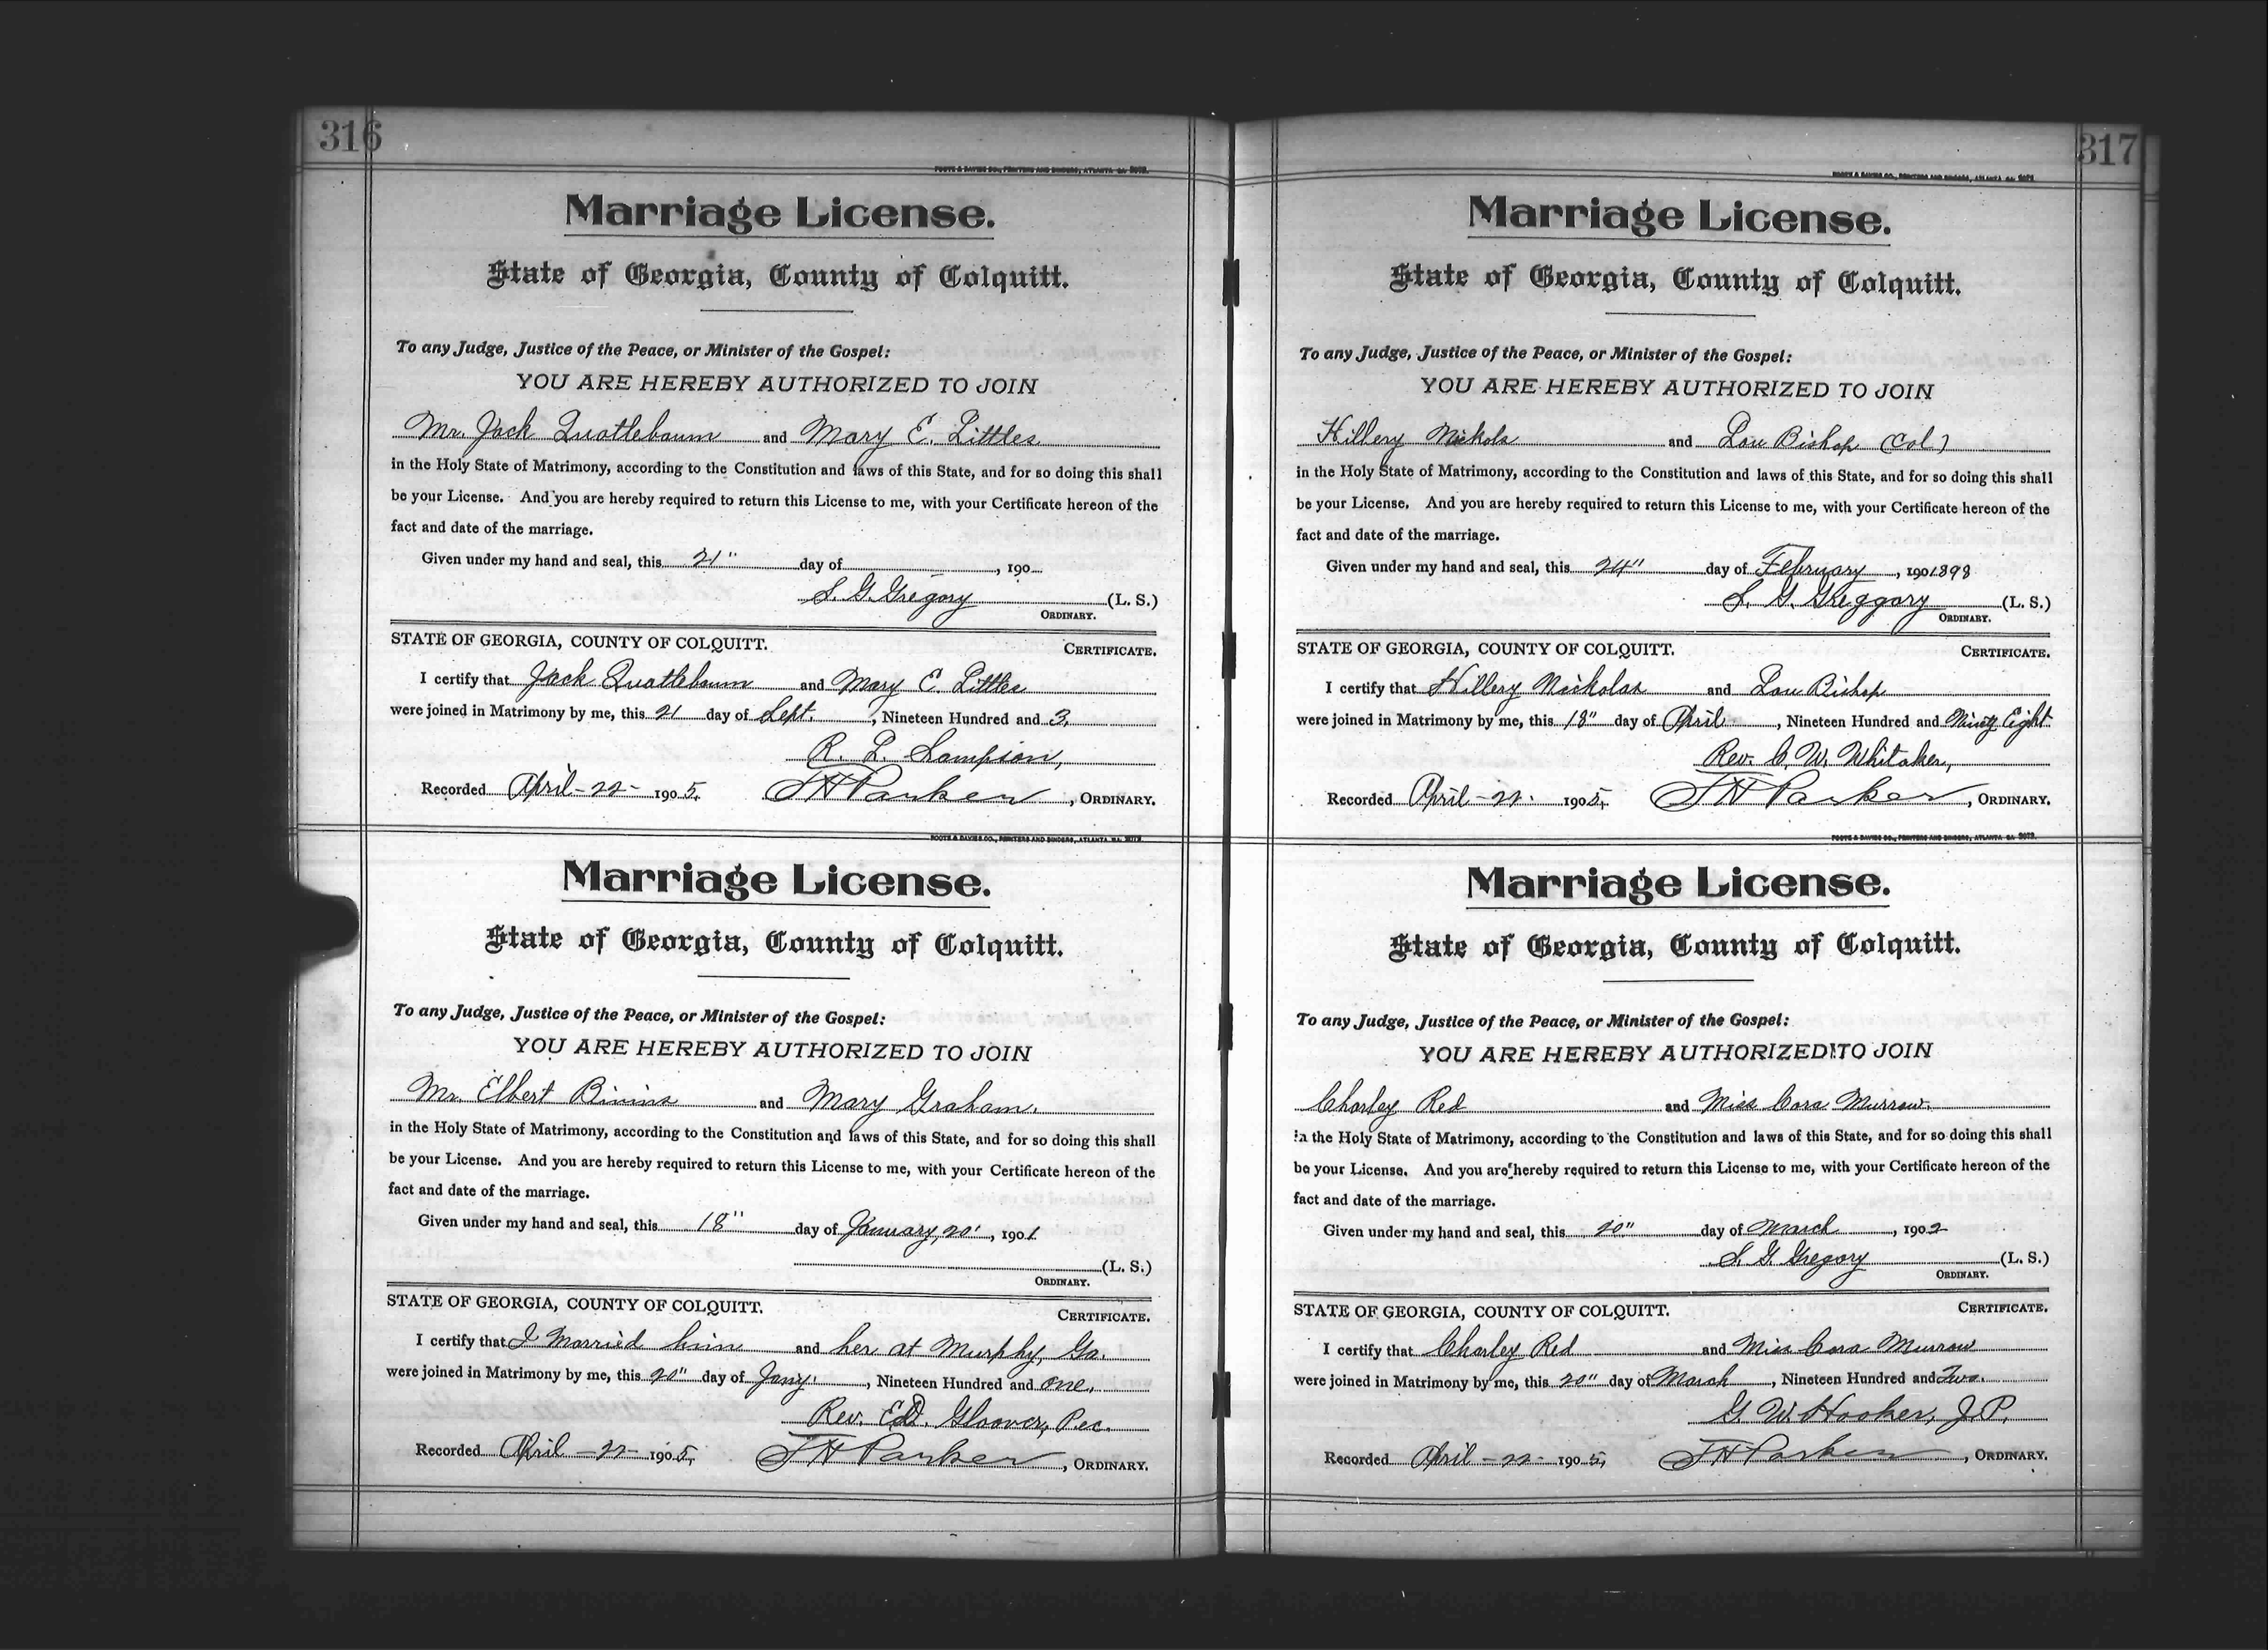 316
FOOTE & DAVIES CO., PRINTERS AND BINDERS, ATLANTA, GA.
Marriage License.
State of Georgia, County of Colquitt.
To any Judge, Justice of the Peace, or Minister of the Gospel:
YOU ARE HEREBY AUTHORIZED TO JOIN
Mr. Jack Quattlebaum and Mary E. Littles
in the Holy State of Matrimony, according to the Constitution and laws of this State, and for so doing this shall
be your License. And you are hereby required to return this License to me, with your Certificate hereon of the
fact and date of the marriage.
Given under my hand and seal, this 21" day of , 190
S. G. Gregory (L. S.)
ORDINARY.
STATE OF GEORGIA, COUNTY OF COLQUITT.
CERTIFICATE.
I certify that Jack Quattlebaum and Mary E. Littles
were joined in Matrimony by me, this 21 day of Sept. , Nineteen Hundred and 3,
R. L. Sampson,
Recorded April-22- 1905, J H Parker, ORDINARY.
FOOTE & DAVIES CO., PRINTERS AND BINDERS, ATLANTA, GA.
Marriage License.
State of Georgia, County of Colquitt.
To any Judge, Justice of the Peace, or Minister of the Gospel:
YOU ARE HEREBY AUTHORIZED TO JOIN
Mr. Elbert Binins and Mary Graham.
in the Holy State of Matrimony, according to the Constitution and laws of this State, and for so doing this shall
be your License. And you are hereby required to return this License to me, with your Certificate hereon of the
fact and date of the marriage.
Given under my hand and seal, this 18" day of January, 20', 1901
(L. S.)
ORDINARY.
STATE OF GEORGIA, COUNTY OF COLQUITT.
CERTIFICATE.
I certify that I Married him and her at Murphy, Ga.
were joined in Matrimony by me, this 20" day of Jany. , Nineteen Hundred and one.
Rev. Ed. Gloover, Pec.
Recorded April-22- 1905, J H Parker, ORDINARY.
317
FOOTE & DAVIES CO., PRINTERS AND BINDERS, ATLANTA, GA.
Marriage License.
State of Georgia, County of Colquitt.
To any Judge, Justice of the Peace, or Minister of the Gospel:
YOU ARE HEREBY AUTHORIZED TO JOIN
Hillery Nickols and Lou Bishop (Col)
in the Holy State of Matrimony, according to the Constitution and laws of this State, and for so doing this shall
be your License. And you are hereby required to return this License to me, with your Certificate hereon of the
fact and date of the marriage.
Given under my hand and seal, this 24" day of February, 1901898
S. G. Greggory (L. S.)
ORDINARY.
STATE OF GEORGIA, COUNTY OF COLQUITT.
CERTIFICATE.
I certify that Hillery Nickolas and Lou Bishop
were joined in Matrimony by me, this 18" day of April , Nineteen Hundred and Ninty Eight
Rev. C. W. Whitaker,
Recorded April-22- 1905, J H Parker, ORDINARY.
FOOTE & DAVIES CO., PRINTERS AND BINDERS, ATLANTA, GA.
Marriage License.
State of Georgia, County of Colquitt.
To any Judge, Justice of the Peace, or Minister of the Gospel:
YOU ARE HEREBY AUTHORIZED TO JOIN
Charley Red and Miss Cora Murrow.
in the Holy State of Matrimony, according to the Constitution and laws of this State, and for so doing this shall
be your License. And you are hereby required to return this License to me, with your Certificate hereon of the
fact and date of the marriage.
Given under my hand and seal, this 20" day of March , 1902
S. G. Gregory (L. S.)
ORDINARY.
STATE OF GEORGIA, COUNTY OF COLQUITT.
CERTIFICATE.
I certify that Charley Red and Miss Cora Murrow
were joined in Matrimony by me, this 20" day of March , Nineteen Hundred and Two.
G. W. Hooker, J.P.
Recorded April-22- 1905, J H Parker, ORDINARY.